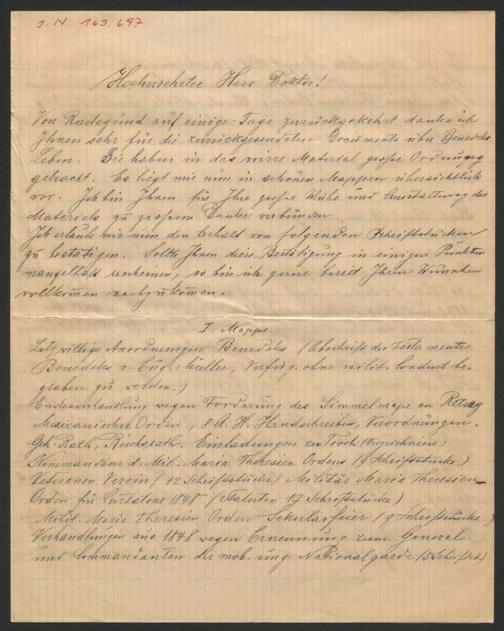 J. N. 163.697
Hochverehrter Herr Doktor!
Von Radegund auf einige Tage zurückgekehrt danke ich
Ihnen sehr für die zurückgesendeten Documente über Benedeks
Leben. Sie haben in das wirre Material große Ordnung
gebracht. Es liegt mir nun in schönen Mappen übersichtlich
vor. Ich bin Ihnen für Ihre große Mühe und Ausstattung des
Materials zu großem Danke verbunden.
Ich erlaube mir nun den Erhalt von folgenden Schriftstücken
zu bestätigen. Sollte Ihnen diese Bestätigung in einigen Punkten
mangelhaft vorkommen, so bin ich gerne bereit Ihren Wünschen
vollkommen nachzukommen.
I. Mappe.
Letzwillige Anordnungen Benedeks (Abschrift des Testamentes
Benedeks v. Eug. Müller, Verfüg. ohne milit. Conduct be-
graben zu werden.)
wegen Forderung des
Mexicanischer Orden, 8 A. H. Handschreiben, Verordnungen.
Geh. Rath, Reichsrath. Einladungen zu Tisch
Kommandeur d. Mil. Maria Theresien Ordens (9 Schriftstücke)
Veteranen Verein (12 Schriftstücke) Militär Maria Theresien-
Orden für Curtatone 1848 (17 Schriftstücke)
Milit. Maria Theresien Orden Sekularfeier (9 Schriftstücke.)
Verhandlungen aus 1848 wegen Ernennung zum General
und Commandanten der mob. ung. Nationalgarde (5 Schriftst.)